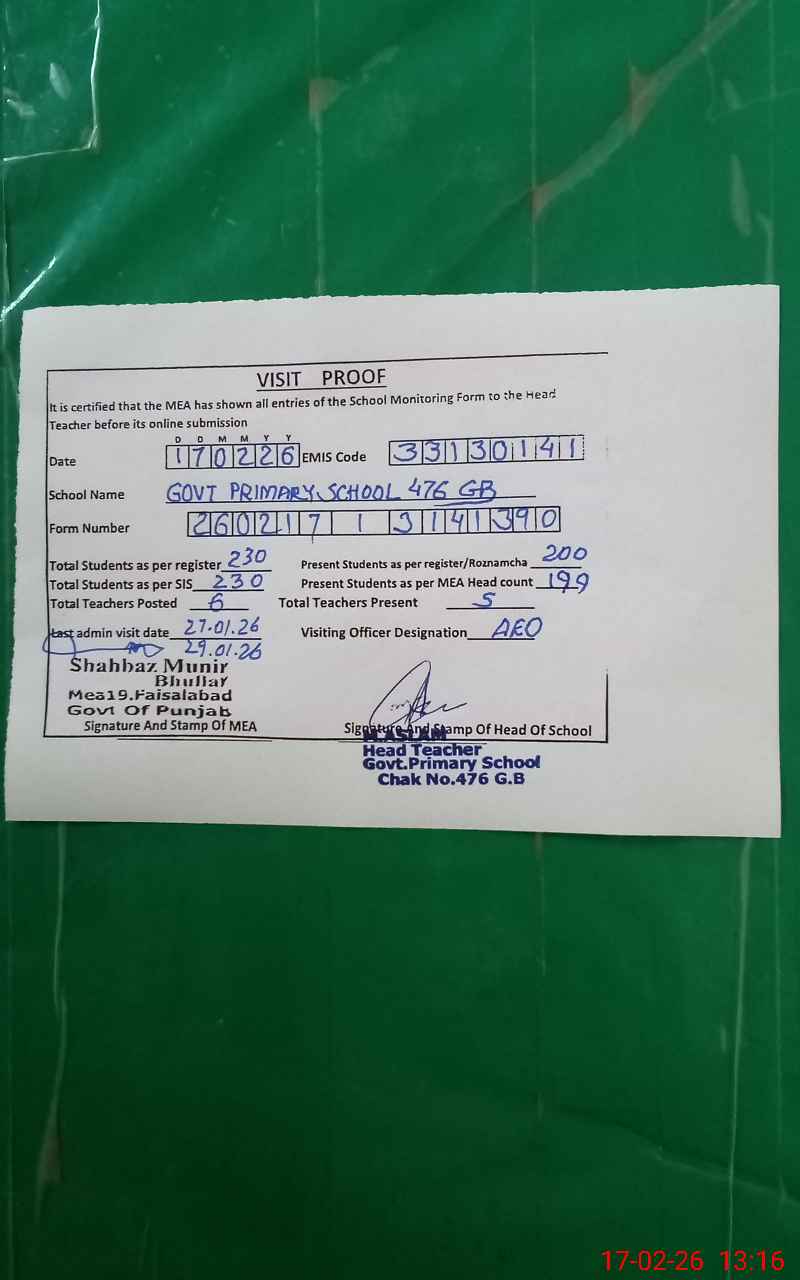 VISIT PROOF
It is certified that the MEA has shown all entries of the School Monitoring Form to the Head
Teacher before its online submission
D D M M Y Y
Date 170226 EMIS Code 33130141
School Name GOVT PRIMARY SCHOOL 476 GB
Form Number 2602171 3141390
Total Students as per register 230 Present Students as per register/Roznamcha 200
Total Students as per SIS 230 Present Students as per MEA Head count 199
Total Teachers Posted 6 Total Teachers Present 5
Last admin visit date 27.01.26 Visiting Officer Designation AEO
29.01.26
Shahbaz Munir
Bhullar
Mea19.Faisalabad
Govt Of Punjab
Signature And Stamp Of MEA Signature And Stamp Of Head Of School
M.ASLAM
Head Teacher
Govt.Primary School
Chak No.476 G.B
17-02-26 13:16